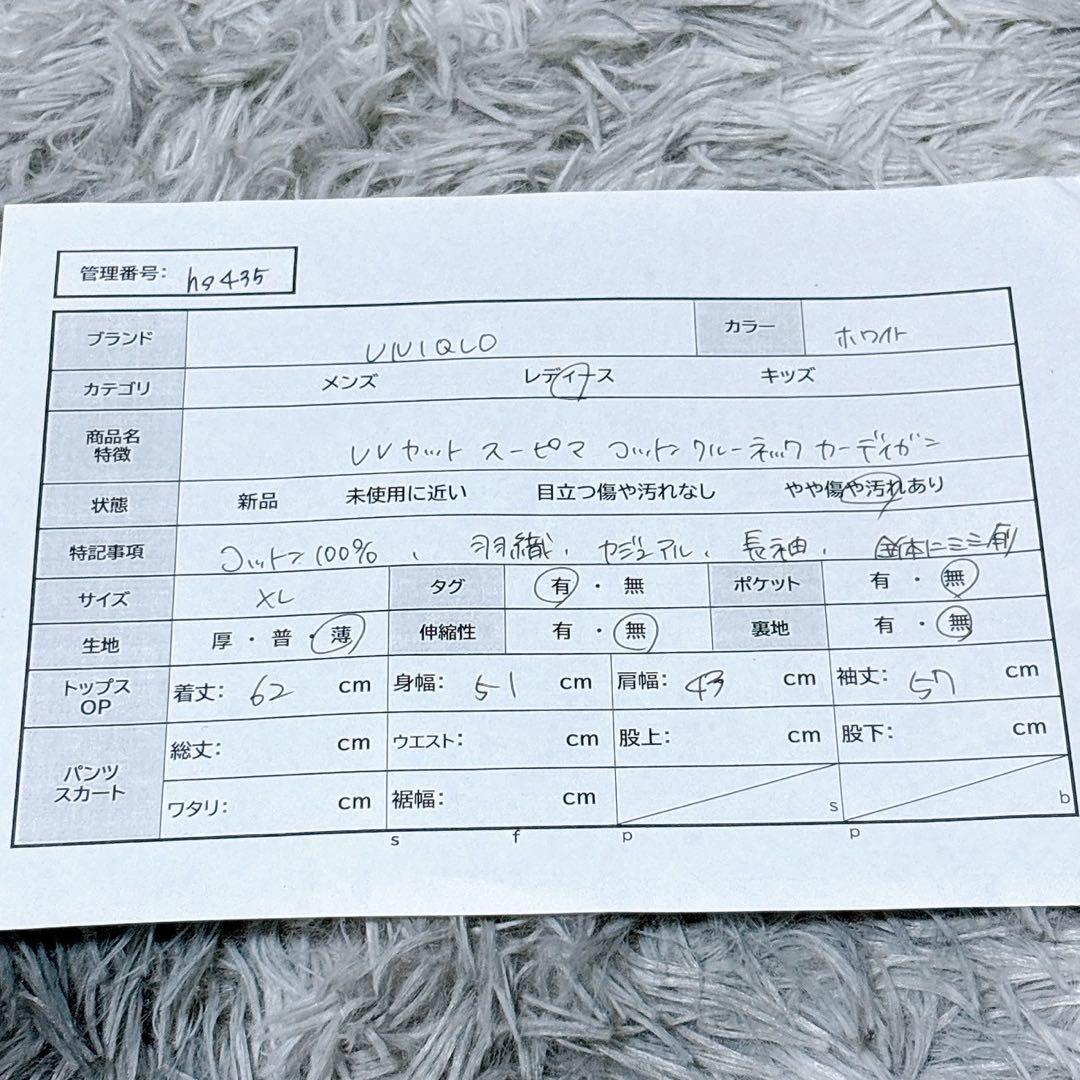 管理番号: hg435
ブランド UNIQLO カラー ホワイト
カテゴリ メンズ レディース キッズ
商品名 特徴 UVカット スーピマ コットン クルーネック カーディガン
状態 新品 未使用に近い 目立つ傷や汚れなし やや傷や汚れあり
特記事項 コットン100%、羽織、カジュアル、長袖、全体にシミ有
サイズ XL タグ 有・無 ポケット 有・無
生地 厚・普・薄 伸縮性 有・無 裏地 有・無
トップス OP 着丈: 62 cm 身幅: 51 cm 肩幅: 43 cm 袖丈: 57 cm
パンツ スカート 総丈: cm ウエスト: cm 股上: cm 股下: cm
ワタリ: cm 裾幅: cm s b
s f p p